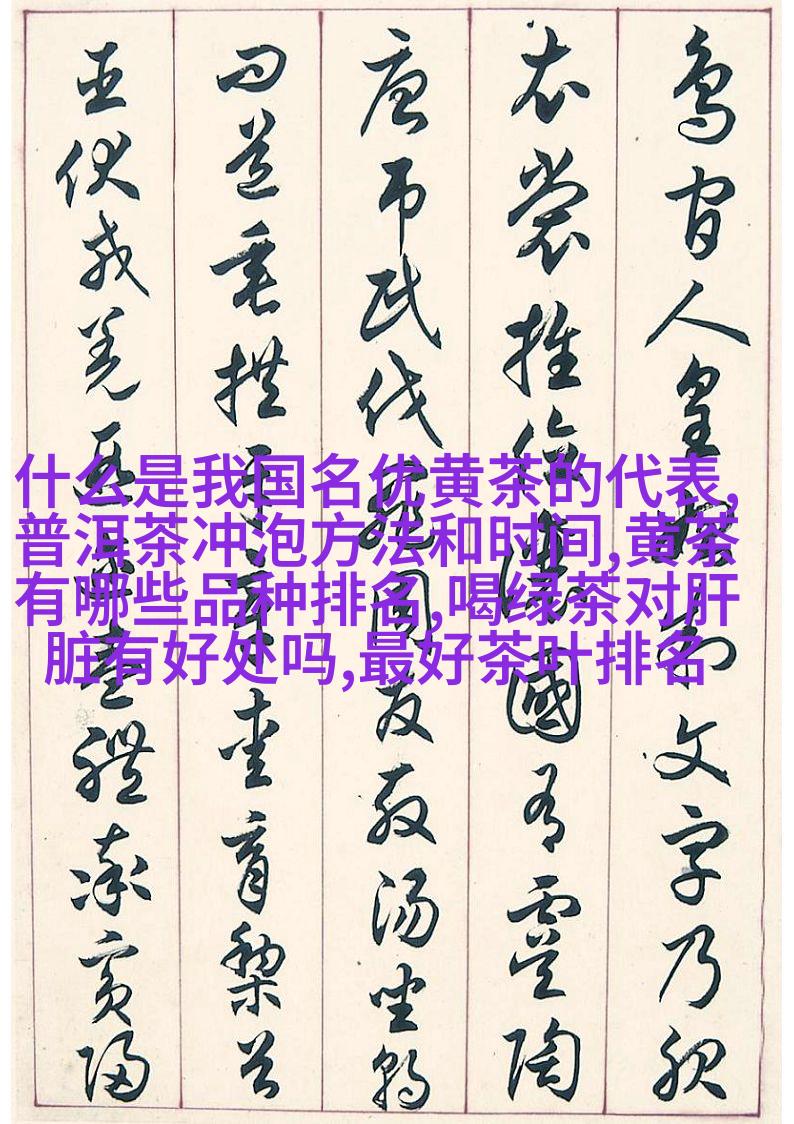 什么是我国名优黄茶的代表,
普洱茶冲泡方法和时间,黄茶
有哪些品种排名,喝绿茶对肝
脏有好处吗,最好茶叶排名
鳥官人皇始制文字乃服
衣裳推位讓國有虞陶
唐弔民伐罪周發殷湯坐朝
問道垂拱平章愛育黎首
臣伏戎羌遐邇壹體率賓歸